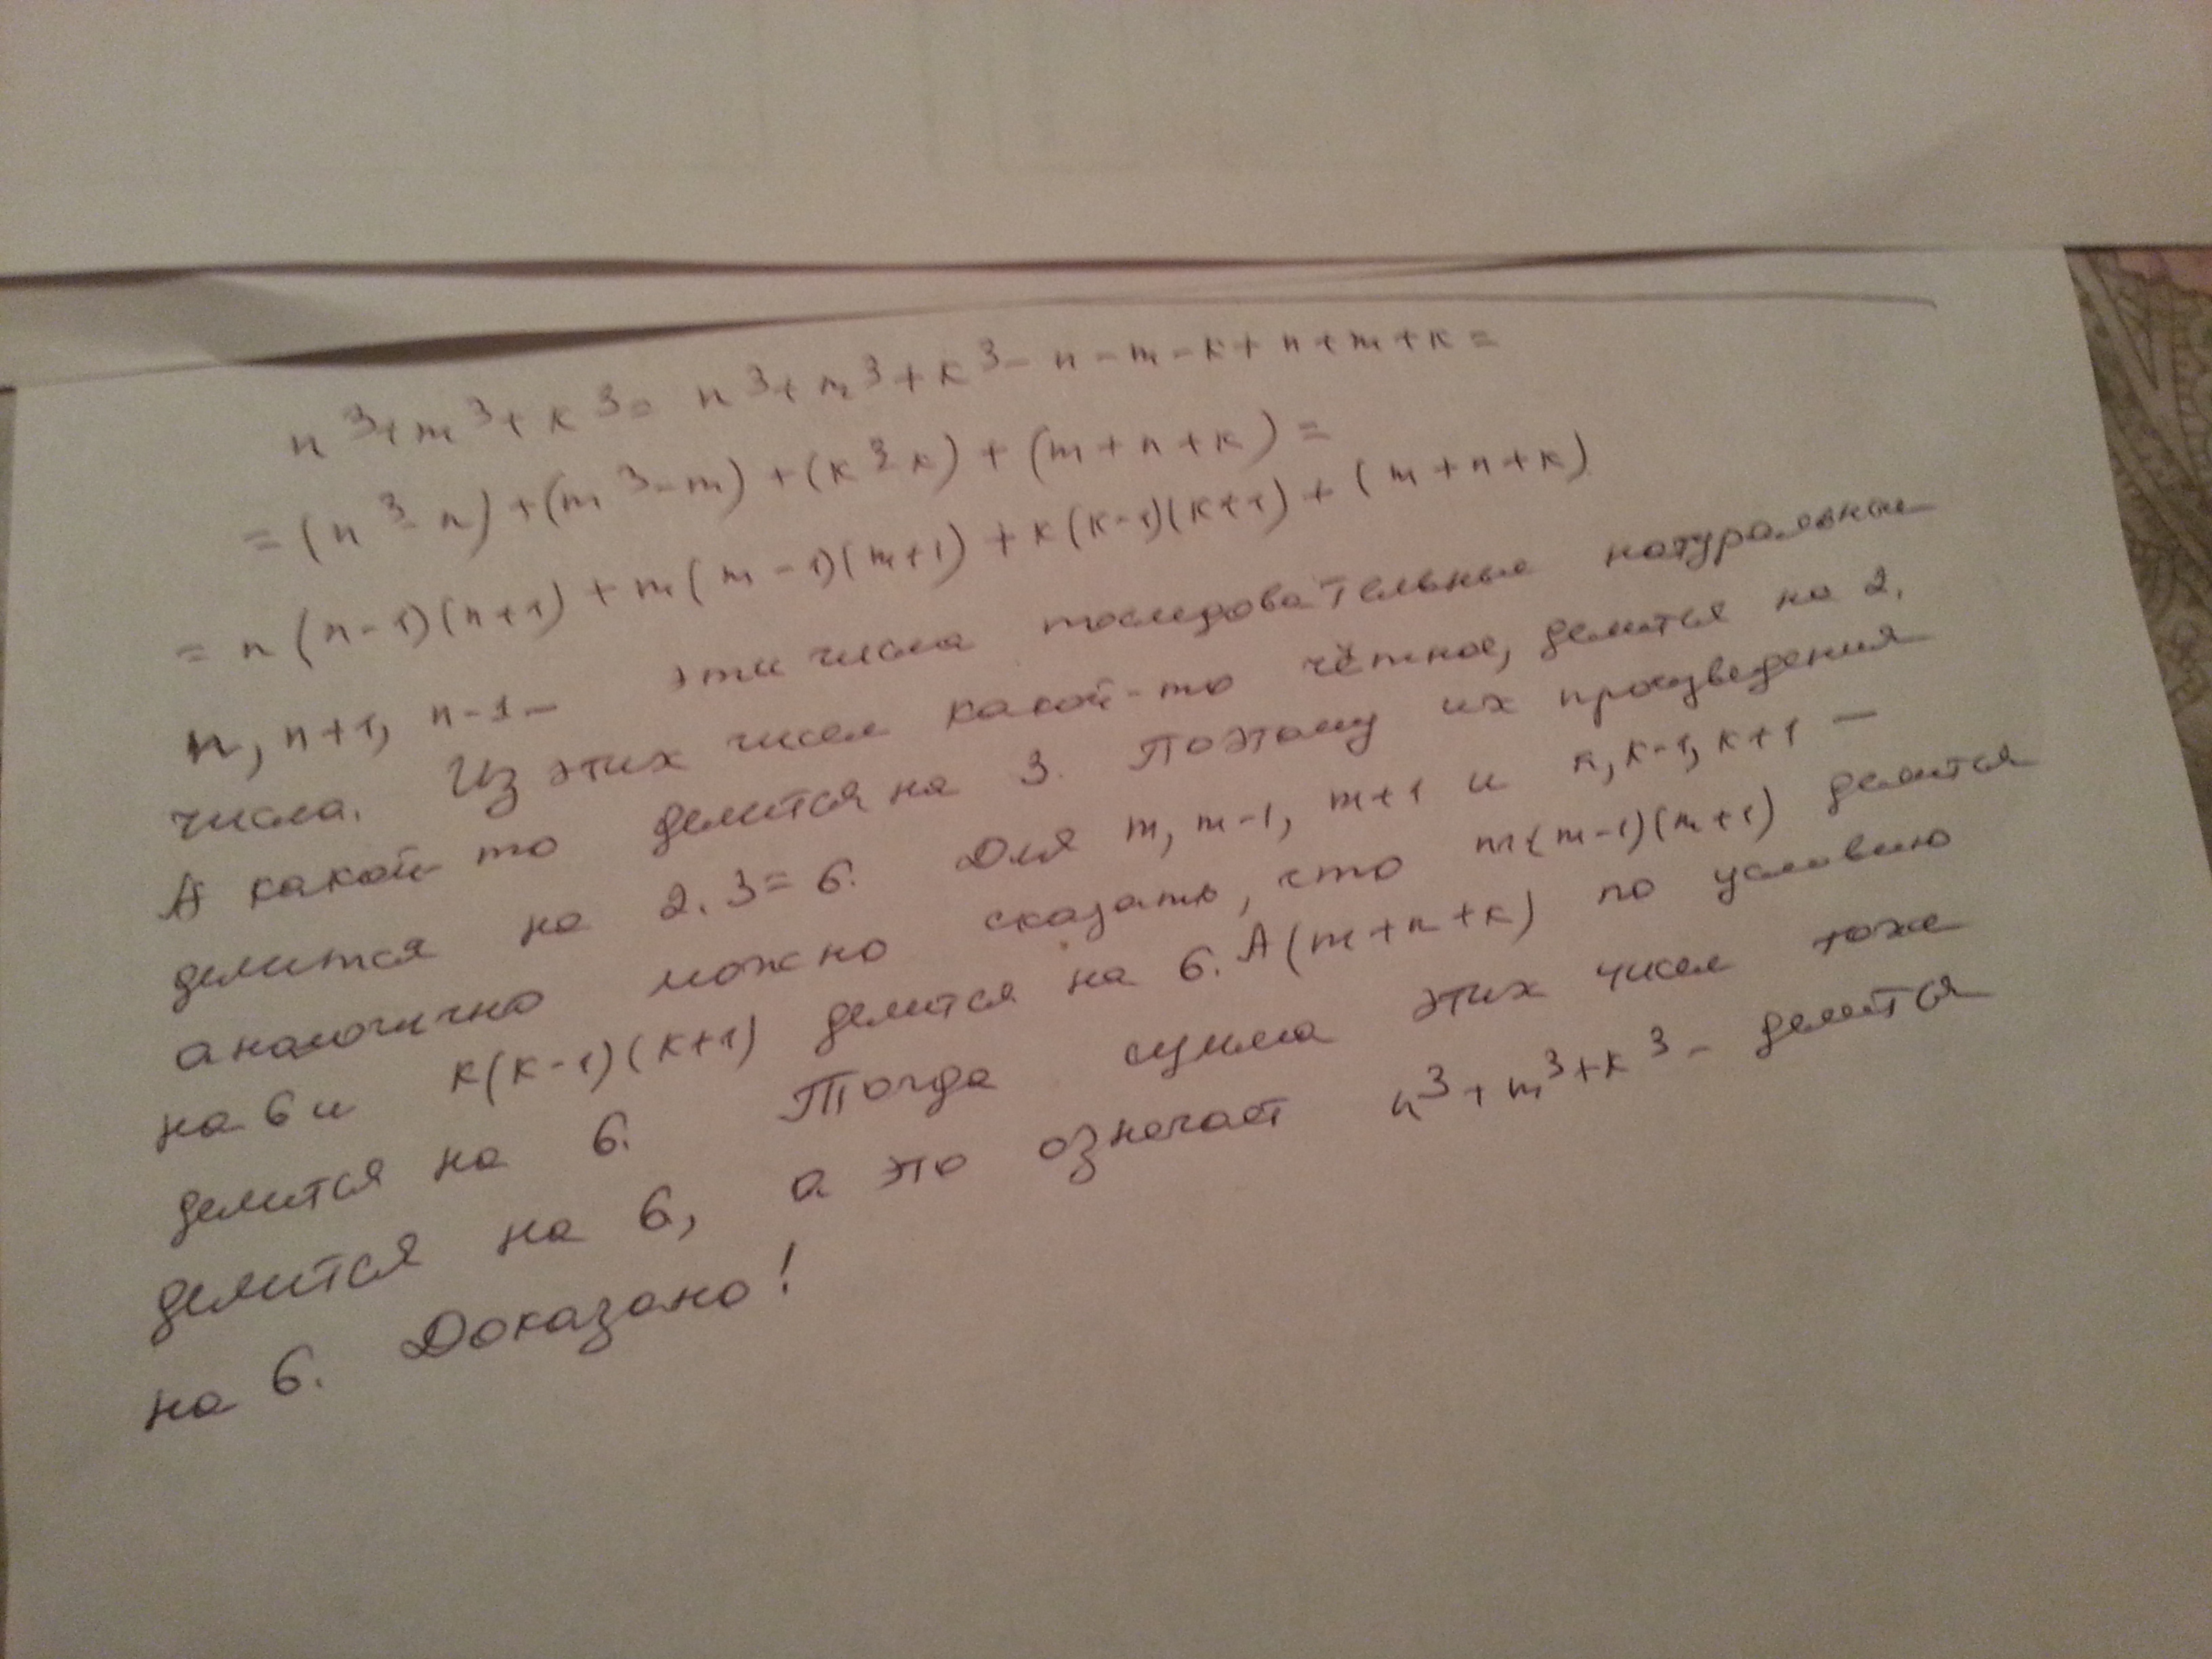 n³+m³+k³= n³+m³+k³-n-m-k+n+m+k=
=(n³-n)+(m³-m)+(k³-k)+(m+n+k)=
=n(n-1)(n+1)+m(m-1)(m+1)+k(k-1)(k+1)+(m+n+k)
n, n+1, n-1- эти числа последовательные натуральные
числа. Из этих чисел какой-то чётное, делится на 2.
А какой-то делится на 3. Поэтому их произведения
делится на 2.3=6. Для m, m-1, m+1 и k, k-1, k+1 —
аналогично можно сказать, что m(m-1)(m+1) делится
на 6 и k(k-1)(k+1) делится на 6. А (m+n+k) по условию
делится на 6. Тогда сумма этих чисел тоже
делится на 6, а это означает n³+m³+k³- делится
на 6. Доказано!